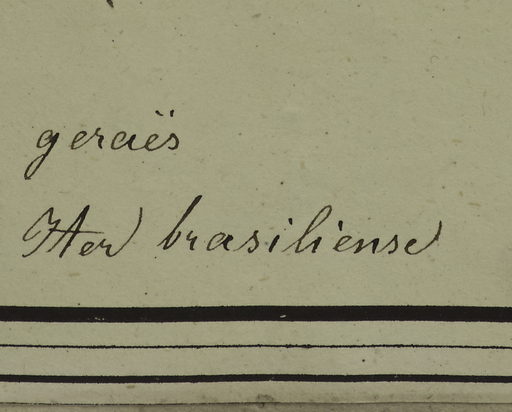 geraës
Iter brasiliense